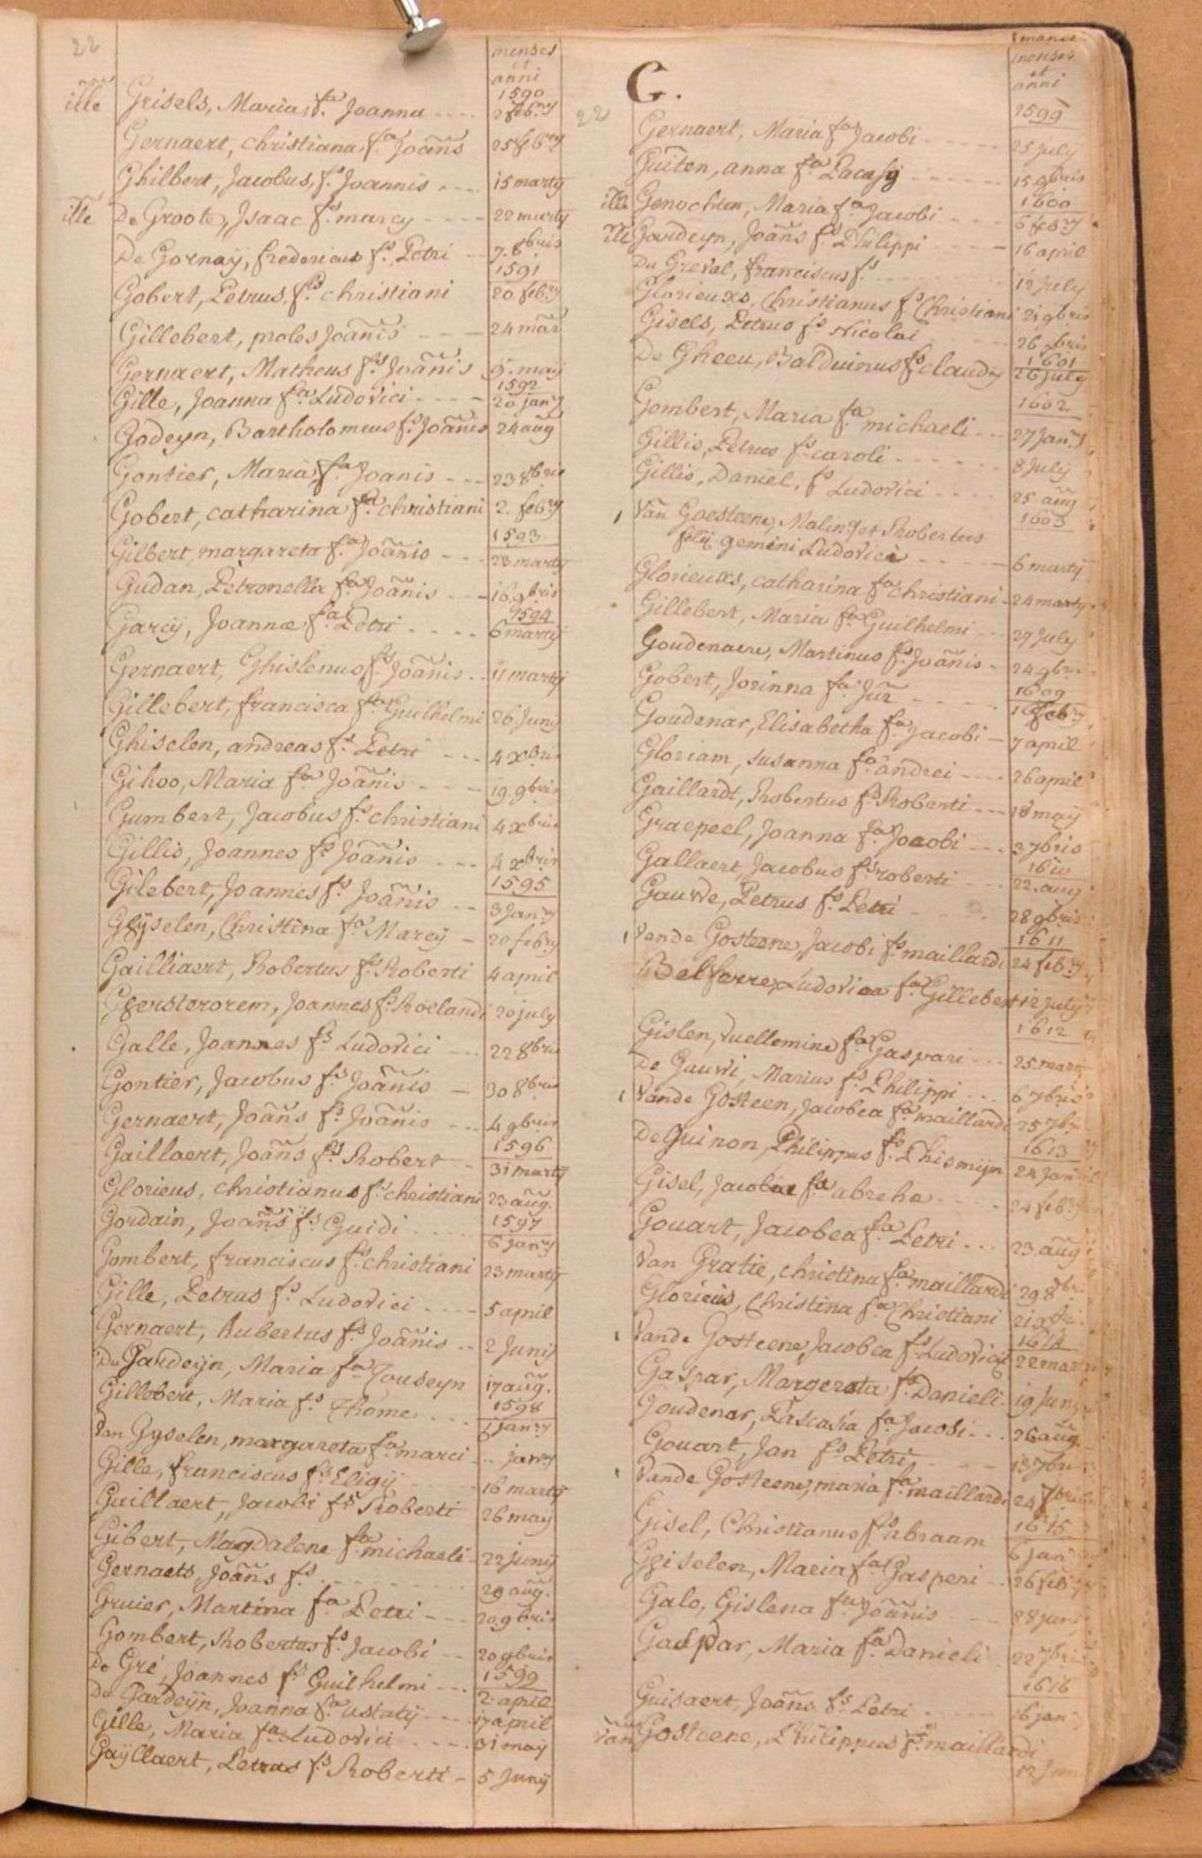 22
menses
et
anni
1590
ille Grisels, Maria, fa Joanna .... 2 feb.ry
Gernaert, christiana, fa Joãñs 25 feb.ry
Ghilbert, Jacobus, fs Joannis .... 15 martÿ
ille De Groote, Isaac fs marcy .... 22 martÿ
De Gornaÿ, fredericus fs Petri .. 7. 8bris
1591
Gobert, Petrus, fs christiani 20 feb.ry
Gillebert, proles Joãñis .... 24 mãr
Gernaert, Matheus fs Joãñis . 9. maÿ
1592
Gille, Joanna fa Ludovici .... 20 jan.y
Godeyn, Bartholomeus fs Joãñis 24 aug
Gontier, Maria, fa Joanis .... 23 8bris
Gobert, catharina fa christiani 2 feb.ry
1593
Gilbert margareta fa Joãñis .. 23 martÿ
Gudan, Petronella fa Joãñis .. 16 9bris
1594
Garcÿ, Joannæ fa Petri .... 6 martÿ
Gernaert, Ghislenus fs Joãñis .. 11 martÿ
Gillebert, francisca fa Guilhelmi 26 Junÿ
Ghiselen, andreas fs Petri .... 4 xbris
Gihoo, Maria fa Joãñis .... 19 9bris
Gumbert, Jacobus fs christiani 4 xbris
Gillis, Joannes fs Joãñis .... 4 xbris
1595
Gilebert, Joannes fs Joãñis .. 3 Jan.y
Ghÿselen, Christina fa Marcÿ - 20 feb.ry
Gailliaert, Robertus fs Roberti 4 april
Joannes fs Roelandi 20 july
Galle, Joannes fs Ludovici .... 22 8bris
Gontier, Jacobus fs Joãñis - 30 8bris
Gernaert, Joãñs fs Joãñis .... 4 9bris
1596
Gaillaert, Joãñs fs Robert - 31 martÿ
Glorieus, christianus fs christiani 23 aug.
1597
Gordain, Joãñs fs Guidi .... 6 jan.y
Gombert, franciscus fs christiani 23 martÿ
Gille, Petrus fs Ludovici .... 5 april
Gernaert, Hubertus fs Joãñis .. 2 Junÿ
Du Gardeÿn, Maria fa Jouseyn 17 aug.
1598
Gillebert, Maria fs Thome .... 1 jan.y
Van Gyselen, margareta fa marci .. jan.y
Gille, franciscus fs Eligÿ 16 martÿ
Guillaert, Jacobi fs Roberti 26 may
Gibert, Magdalena fa michaeli - 22 junÿ
Gernaets, Joãñs fs .... 29 aug.
Gruier, Martina fa Petri .... 20 9bris
Gombert, Robertus fs Jacobi .. 20 9bris
1599
De Gré, Joannes fs Guilhelmi .... 2 april
Du Gardeÿn, Joanna fa ustatÿ .... 17 april
Gille, Maria fa Ludovici .... 31 may
Gaÿllaert, Petrus fs Roberti - 5 Junÿ
G.
menses
et
anni
1599
22 Gernaert, Maria fa Jacobi .... 25 july
Guiten, anna fa .... 15 9bris
1600
ille Genochten, Maria fa Jacobi .... 6 feb.ry
ille Gardeyn, Joãñs fs Philippi - 16 april
Du Greval, franciscus fs .... 12 July
Glorieuxs, Christianus fs Christiani 21 9bris
Gisels, Petrus fs Nicolai .... 26 xbris
1601
De Gheeu, Balduinus fs claudÿ 26 july
1602
Gombert, Maria fa michaeli .... 27 Jan.y
Gillis, Petrus fs caroli .... 8 July
Gillis, Daniel, fs Ludovici .... 25 aug
1603
Van Goesteene, Malin et Robertus
filÿ gemini Ludovici .... 6 martÿ
Glorieuxs, catharina fa christiani - 24 martÿ
Gillebert, Maria fa Guilhelmi .... 29 july
Goudenaere, Martinus fs Joãñis - 24 9bris
1609
Gobert, Jorinna fa Jũr .... 16 feb.y
Goudenar, Elisabetha fa Jacobi - 7 april
Gloriam, Susanna fa andrei .... 26 april
Gaillardt, Robertus fs Roberti .... 18 maÿ
Graepeel, Joanna fa Jacobi .... 3 7bris
1610
Gallaert Jacobus fs roberti .... 22. aug
Gauwe, Petrus fs Petri .... 28 9bris
1611
Vande Gosteene, Jacobi fs maillardi 24 feb.y
Delferre, Ludovica fa Gillebert 12 july
1612
Gislen, vuellemine fa Gaspari .... 25 mart
De Gauvri, Marius fs Philippi .... 6 7bris
Vande Gosteen, Jacobea fa maillardi 25 7bris
1613
De Guinon, Philippus fs 24 Jan
Gisel, Jacobae fa abrehe .... 24 feb.
Gouart, Jacobea fa Petri .... 23 aug
Van Gratie, christina fa maillardi 29 8bris
Glorieus, Christina fa Christiani 21 xbris
1614
Vande Gosteene, Jacobea fs Ludovici 22 mar
Gaspar, Margereta fa Danieli - 19 Junÿ
Goudenar, Pascasia fa Jacobi .... 26 aug
Gouart, Jan fs Petri .... 13 7bris
Vande Gosteene, maria fa maillardi 24
1615
Gisel, Christianus fs abraam 6 jan
Ghiselen, Maria fa Jasperi .. 26 feb
Galo, Gislena fa Joãñis - 28 jun
Gaspar, Maria fa Danieli . 22 7bris
1616
Guisaert, Joãñs fs Petri .... 6 jan
Van Gosteene, Philippus fs maillardi
12 Jun